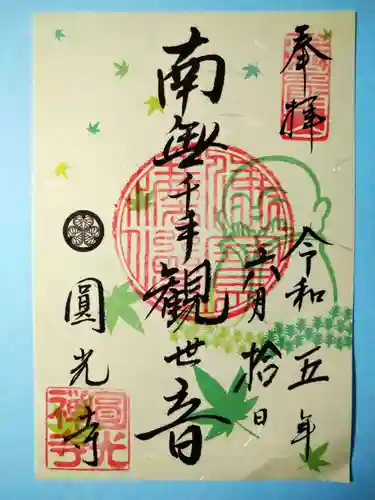 奉拝
令和五年
六月拾日
南無千手観世音
圓光寺
圓光
禅寺